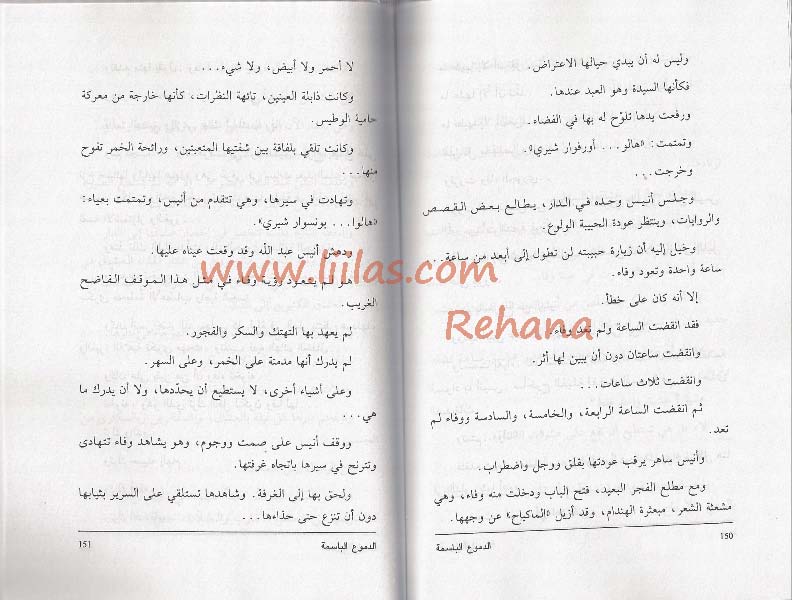 وليس له أن يبدي حيالها الاعتراض.
فكأنها السيدة وهو العبد عندها.
ورفعت يدها تلوّح له بها في الفضاء.
وتمتمت: «هالو... أورفوار شيري».
وخرجت...
وجلس أنيس وحده في الدار، يطالع بعض القصص
والروايات، وينتظر عودة الحبيبة الولوع.
وخيل إليه أن زيارة حبيبته لن تطول إلى أبعد من ساعة...
ساعة واحدة وتعود وفاء.
إلا أنه كان على خطأ.
فقد انقضت الساعة ولم تعد وفاء.
وانقضت ساعتان دون أن يبين لها أثر.
وانقضت ثلاث ساعات...
ثم انقضت الساعة الرابعة، والخامسة، والسادسة ووفاء لم
تعد.
وأنيس ساهر يرقب عودتها بقلق ووجل واضطراب.
ومع مطلع الفجر البعيد، فتح الباب ودخلت منه وفاء، وهي
مشعثة الشعر، مبعثرة الهندام، وقد أزيل «الماكياج» عن وجهها.
150
الدموع الباسمة
لا أحمر ولا أبيض، ولا شيء...
وكانت ذابلة العينين، تائهة النظرات، كأنها خارجة من معركة
حامية الوطيس.
وكانت تلقي بلفافة بين شفتيها المتعبتين، ورائحة الخمر تفوح
منها...
وتهادت في سيرها، وهي تتقدم من أنيس، وتمتمت بعياء:
«هالوا... بونسوار شيري».
ودهش أنيس عبد الله وقد وقعت عيناه عليها.
هو لم يتعود رؤية وفاء في مثل هذا الموقف الفاضح
الغريب.
لم يعهد بها التهتك والسكر والفجور.
لم يدرك أنها مدمنة على الخمر، وعلى السهر.
وعلى أشياء أخرى، لا يستطيع أن يحدّدها، ولا أن يدرك ما
هي...
ووقف أنيس على صمت ووجوم، وهو يشاهد وفاء تتهادى
وتترنح في سيرها باتجاه غرفتها.
ولحق بها إلى الغرفة. وشاهدها تستلقي على السرير بثيابها
دون أن تنزع حتى حذاءها...
151
الدموع الباسمة
www.liilas.com
Rehana